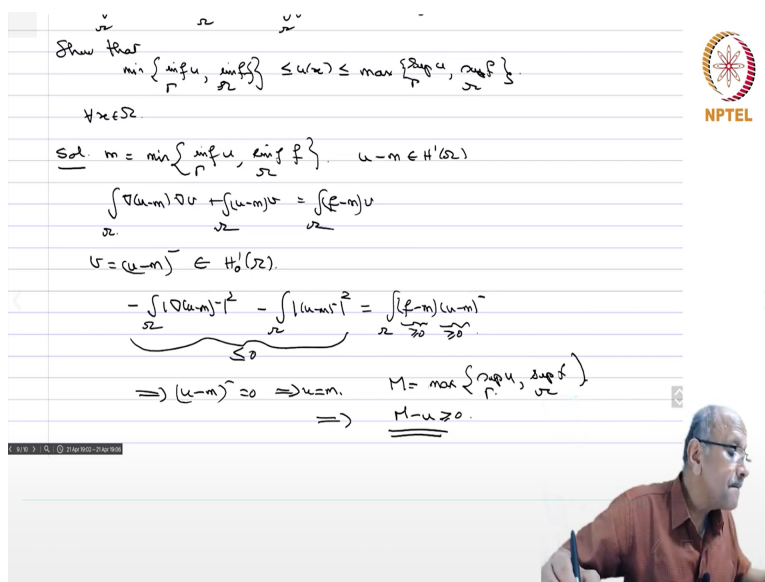 Ω Ω Ω
Show that
min { inf u, inf f } ≤ u(x) ≤ max { sup u, sup f }.
Γ Ω Γ Ω
∀x∈Ω.
Sol. m = min { inf u, inf f }. u-m ∈ H¹(Ω)
Γ Ω
∫ ∇(u-m) ∇v + ∫(u-m)v = ∫(f-m)v
Ω Ω Ω
v = (u-m)⁻ ∈ H₀¹(Ω).
- ∫ |∇(u-m)⁻|² - ∫ |(u-m)⁻|² = ∫ (f-m) (u-m)⁻
Ω Ω Ω ≥0 ≥0
≤0
⟹ (u-m)⁻ = 0 ⟹ u=m. M = max { sup u, sup f }
Γ Ω
⟹ M-u ≥ 0.
NPTEL
9/10 21 Apr 19:02 - 21 Apr 19:06